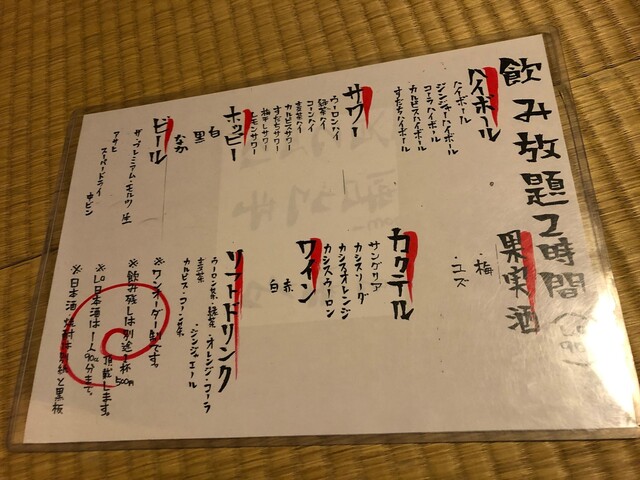 飲み放題2時間
ハイボール
ハイボール
ジンジャーハイボール
コーラハイボール
カルピスハイボール
すだちハイボール
サワー
ウーロンハイ
緑茶ハイ
コーンハイ
カルピスサワー
すだちサワー
梅干しサワー
レモンサワー
ホッピー
白
黒
なか
ビール
ザ・プレミアム・モルツ 生
アサヒ
スーパードライ 中ビン
果実酒
・梅
・ユズ
カクテル
サングリア
カシスソーダ
カシスオレンジ
カシスウーロン
ワイン
赤
白
ソフトドリンク
ウーロン茶・緑茶・オレンジ・コーラ
・ジンジャエール
カルピス・コーン茶
※ワンオーダー制です。
※飲み残しは別途一杯500円
頂戴します。
※L.O日本酒は1人90分まで。
※日本酒 焼酎は別紙と黒板